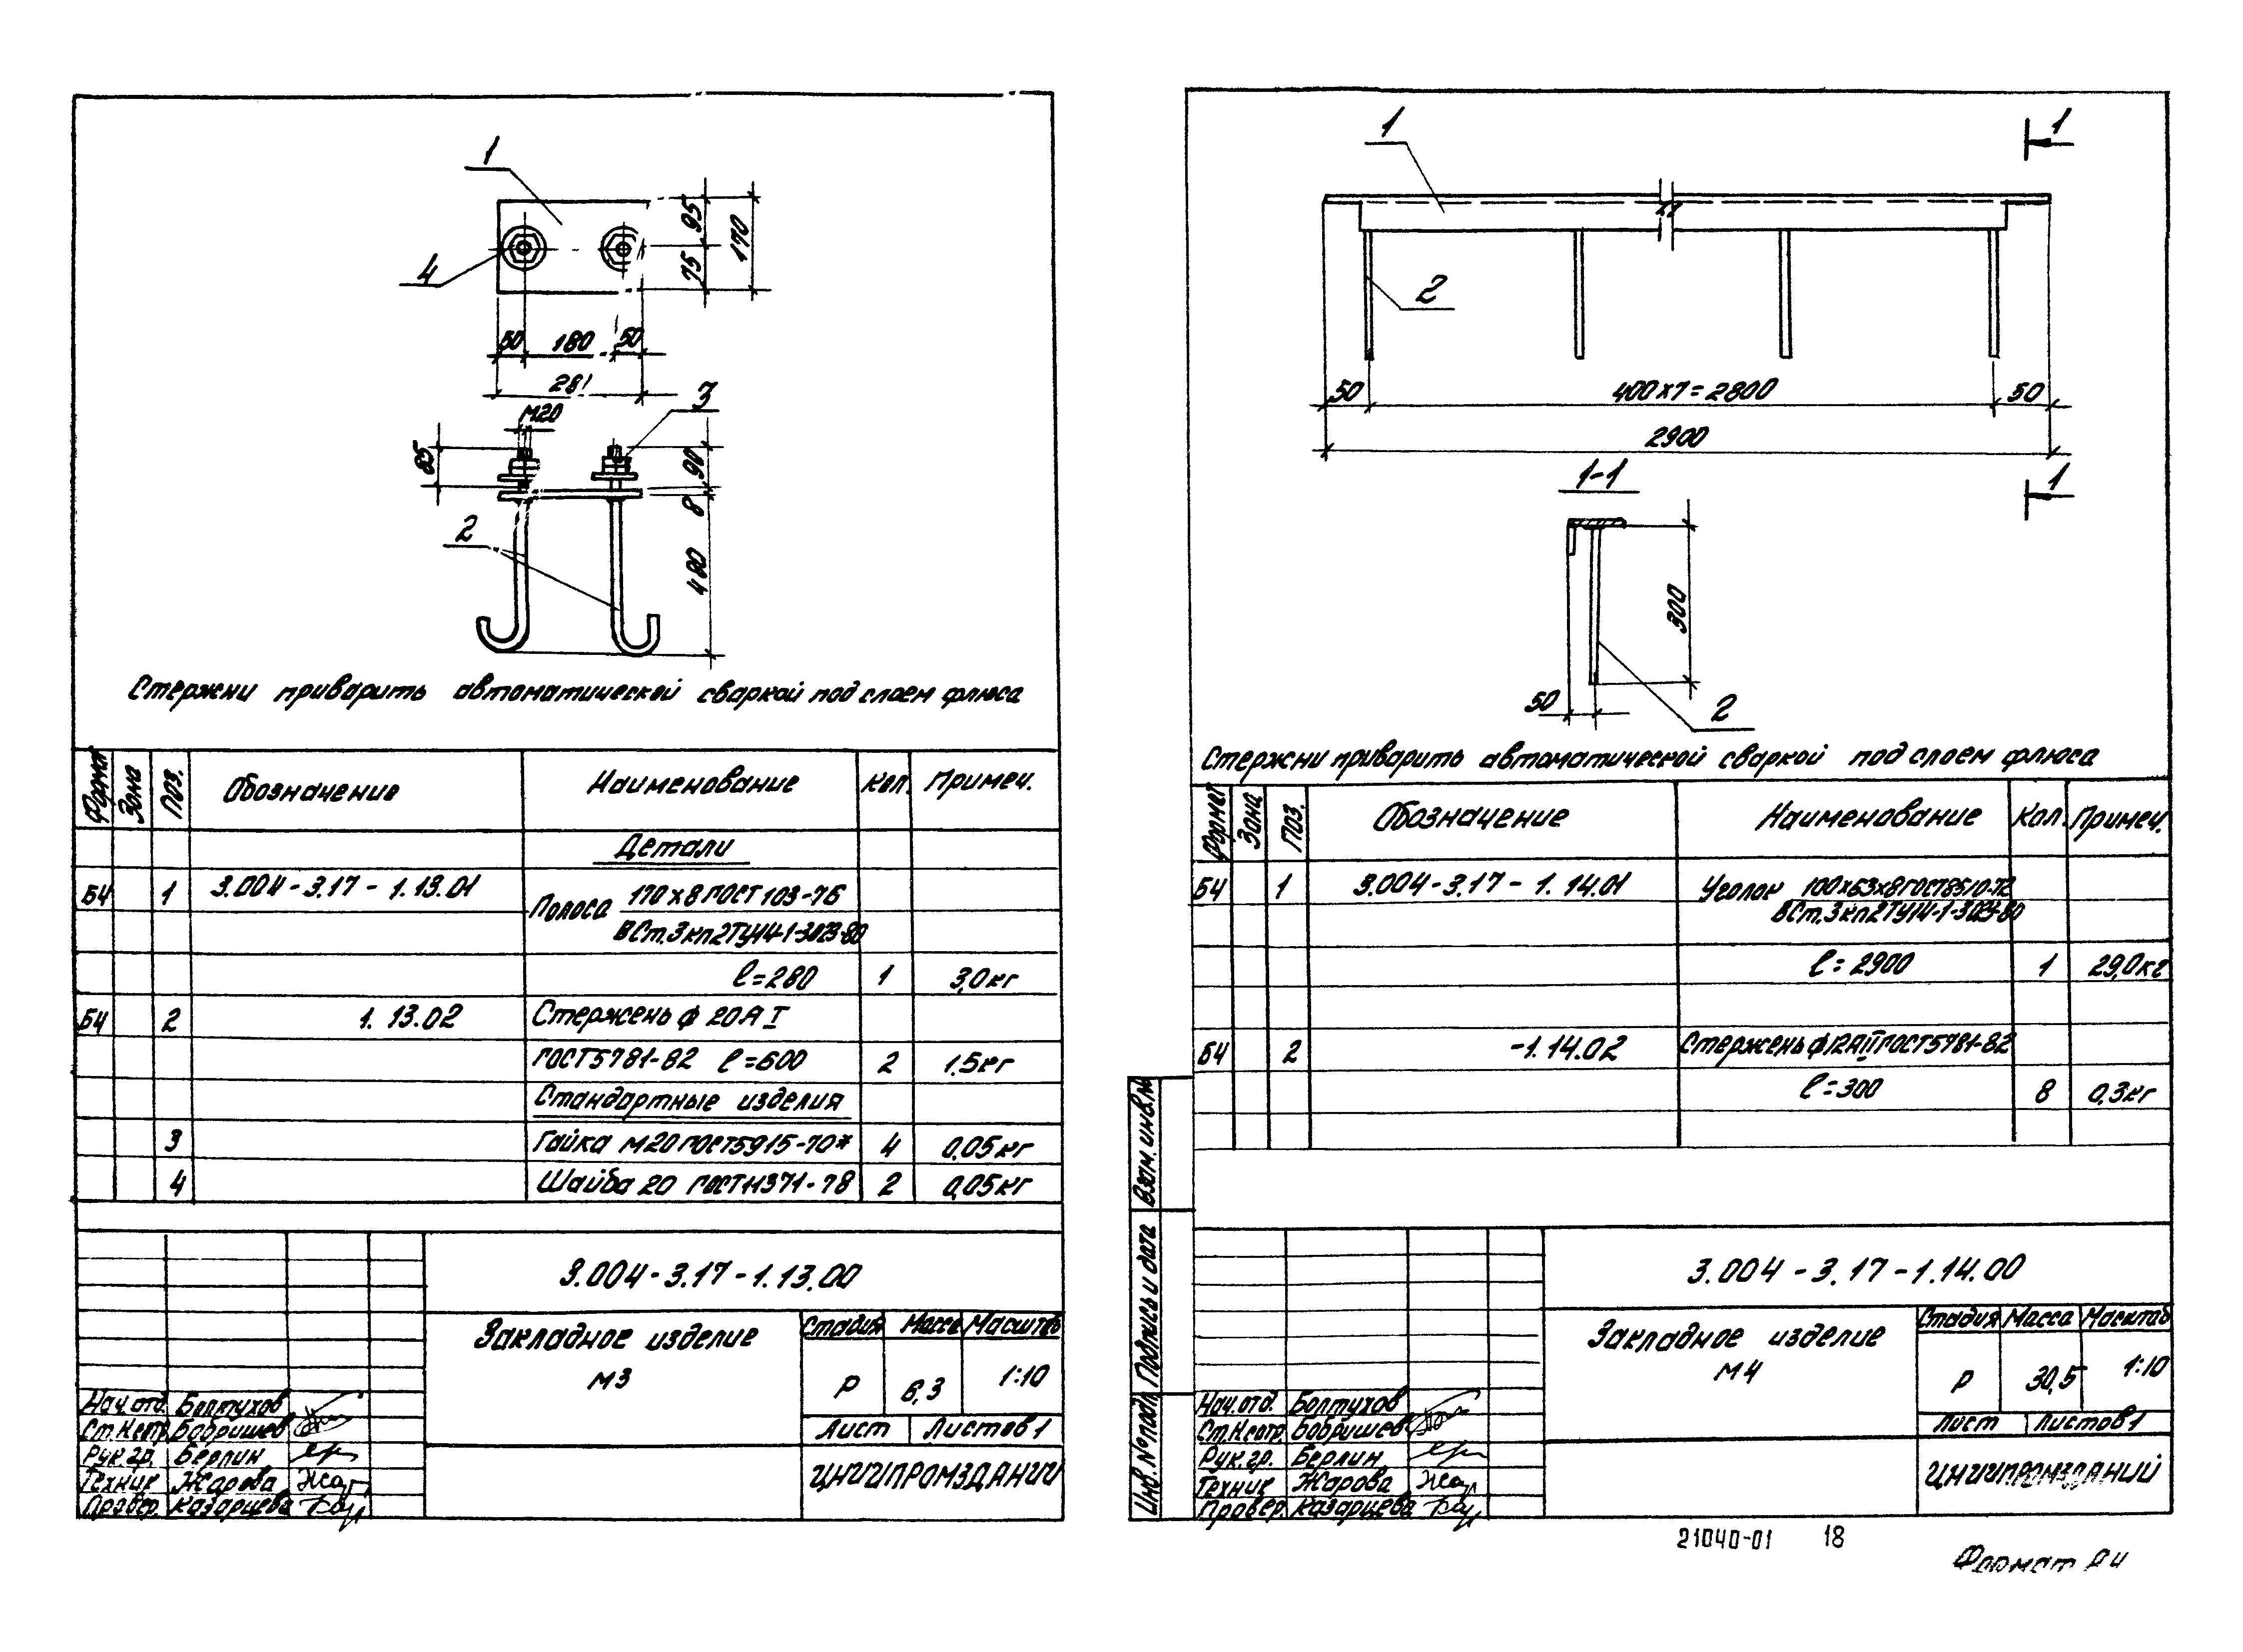 1
4
95
75
170
50 180 50
28
М20
3
85
90
8
480
2
Стержни приварить автоматической сваркой под слоем флюса
Формат Зона Поз. Обозначение Наименование Кол. Примеч.
Детали
БЧ 1 3.004-3.17-1.13.01 Полоса 170х8 ГОСТ 103-76
ВСт.3кп2ТУ14-1-3023-80
ℓ=280 1 3,0кг
БЧ 2 1.13.02 Стержень ф 20АI
ГОСТ5781-82 ℓ=600 2 1,5кг
Стандартные изделия
3 Гайка М20 ГОСТ5915-70* 4 0,05кг
4 Шайба 20 ГОСТ11371-78 2 0,05кг
3.004-3.17-1.13.00
Закладное изделие
М3
Стадия Масса Масштаб
Р 6,3 1:10
Лист Листов 1
ЦНИИПРОМЗДАНИЙ
Нач.отд. Болтухов
Ст.Н.сотр. Бобришев
Рук гр. Берлин
Техник Жарова
Провер. Казарцева
1
1
2
50 400х7=2800 50
2900
1-1
1
300
50
2
Стержни приварить автоматической сваркой под слоем флюса
Формат Зона Поз. Обозначение Наименование Кол. Примеч.
БЧ 1 3.004-3.17-1.14.01 Уголок 100х63х8ГОСТ8510-72
ВСт.3кп2ТУ14-1-3023-80
ℓ=2900 1 29,0кг
БЧ 2 -1.14.02 Стержень ф12АII ГОСТ5781-82
ℓ=300 8 0,3кг
Взам. инв.№
Подпись и дата
Инв. № подл.
3.004-3.17-1.14.00
Закладное изделие
М4
Стадия Масса Масштаб
Р 30,5 1:10
Лист Листов 1
ЦНИИПРОМЗДАНИЙ
Нач.отд. Болтухов
Ст.Н.сотр. Бобришев
Рук.гр. Берлин
Техник Жарова
Провер. Казарцева
21040-01 18
Формат